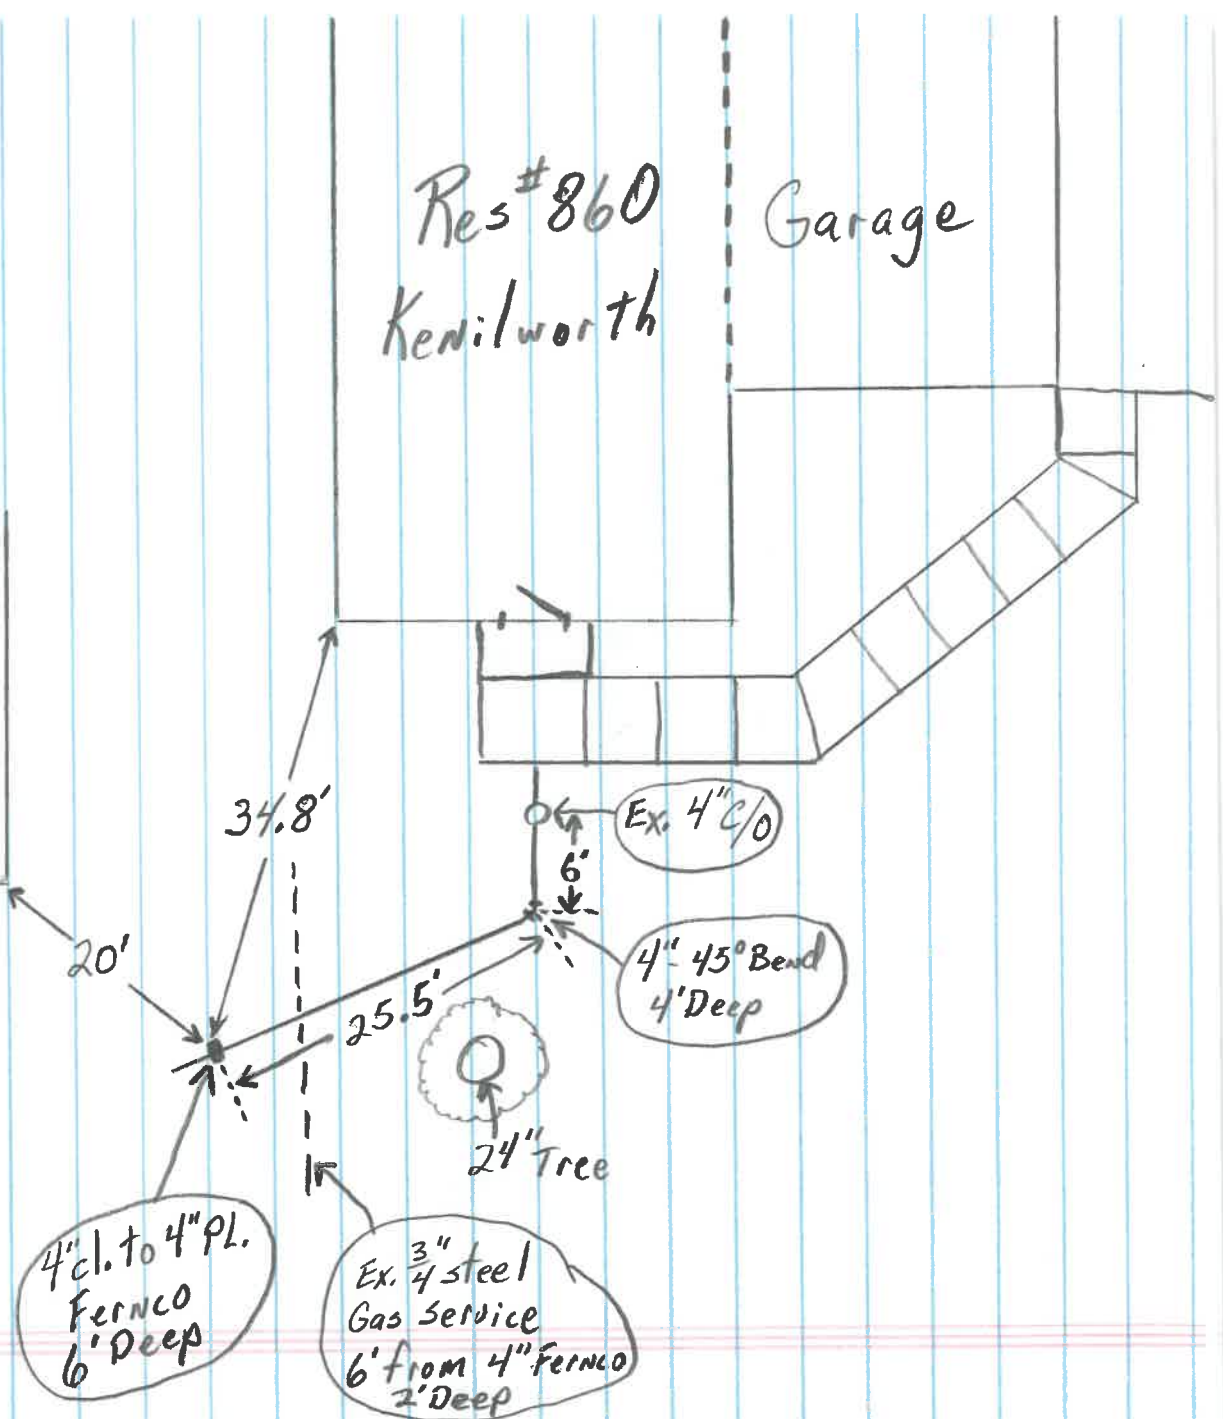 Res #860
Kenilworth
Garage
34.8'
Ex. 4" C/O
6'
20'
25.5'
4"-45° Bend
4' Deep
24" Tree
4" cl. to 4" PL.
Fernco
6' Deep
Ex. 3/4" steel
Gas Service
6' from 4" Fernco
2' Deep